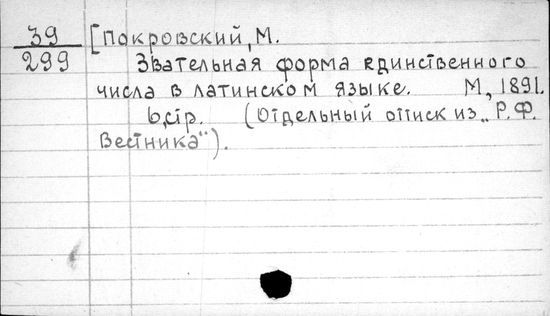 39 [Покровский, М.
299 Звательная форма единственного
числа в латинском языке. М., 1891.
6 стр. (Отдельный оттиск из „Р.Ф.
Вестника").